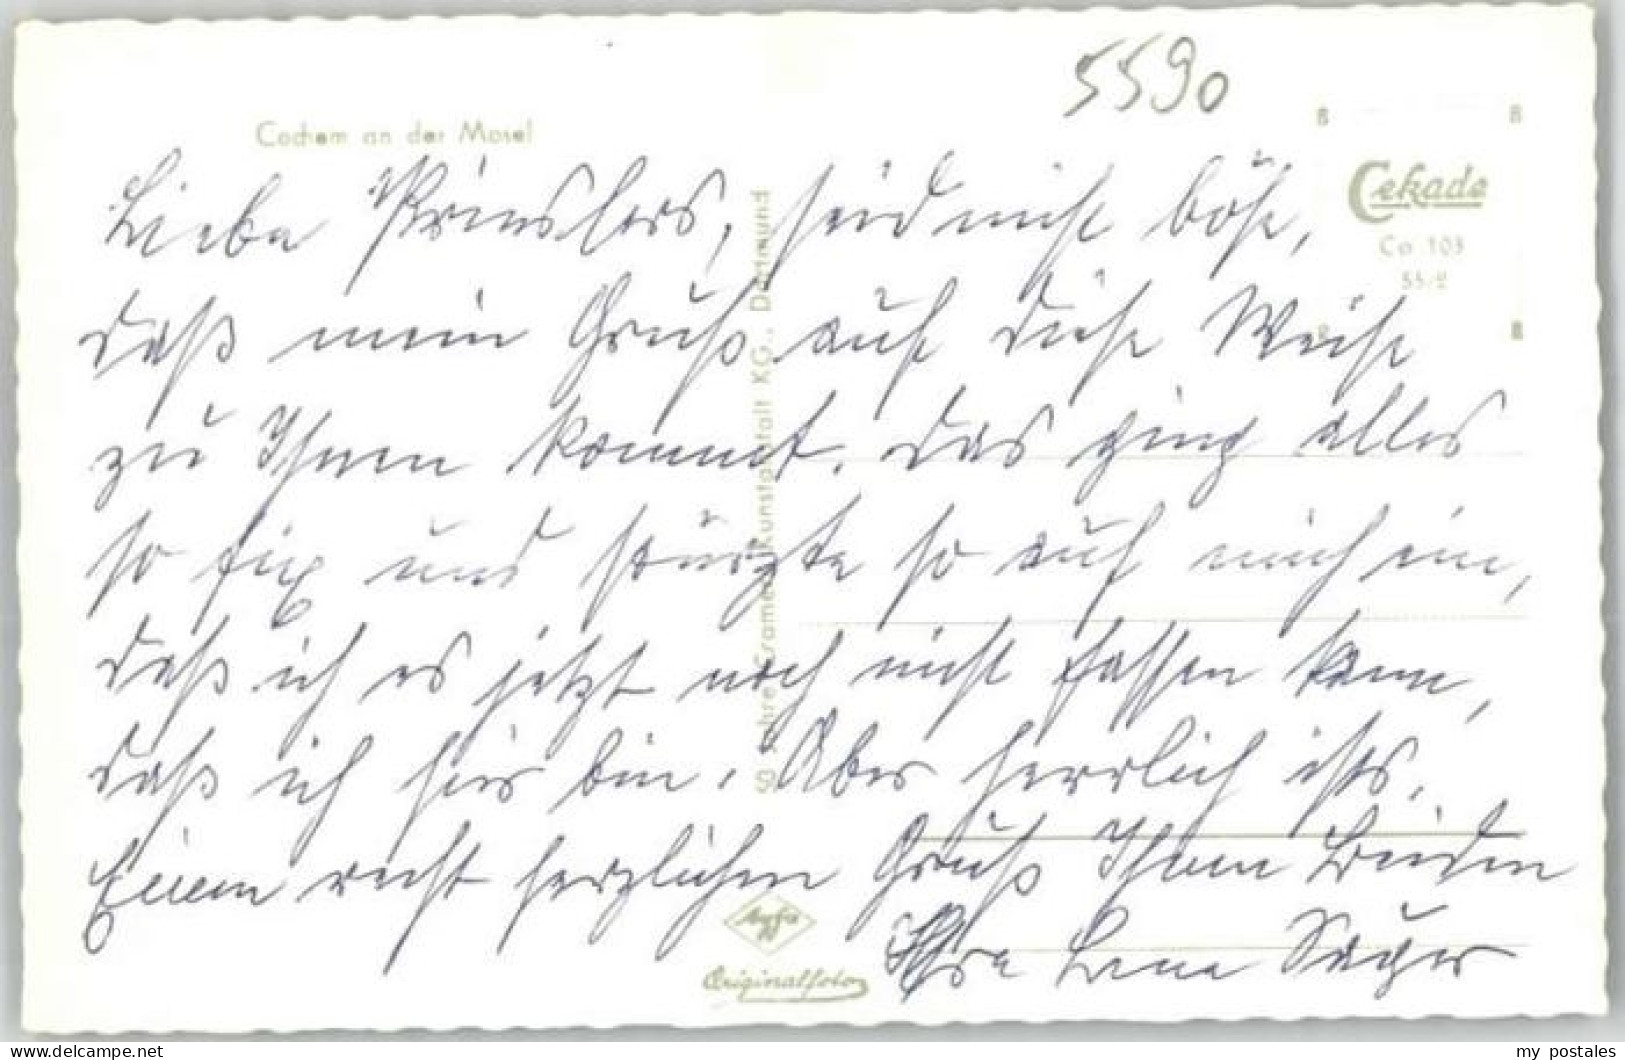 5590
8 8
Cochem an der Mosel
Cekade
Co 103
55/2
8 8
Liebe Prinslers, seid nicht böse,
daß mein Gruß auf diese Weise
zu Ihnen kommt. Das ging alles
so fix und stürzte so auf mich ein,
daß ich es jetzt noch nicht fassen kann,
daß ich hier bin. Aber herrlich ists.
Einen recht herzlichen Gruß Ihnen beiden
Ihre Lena
50 Jahre Cramers Kunstanstalt KG., Dortmund
Agfa
Originalfoto
my postales
delcampe.net